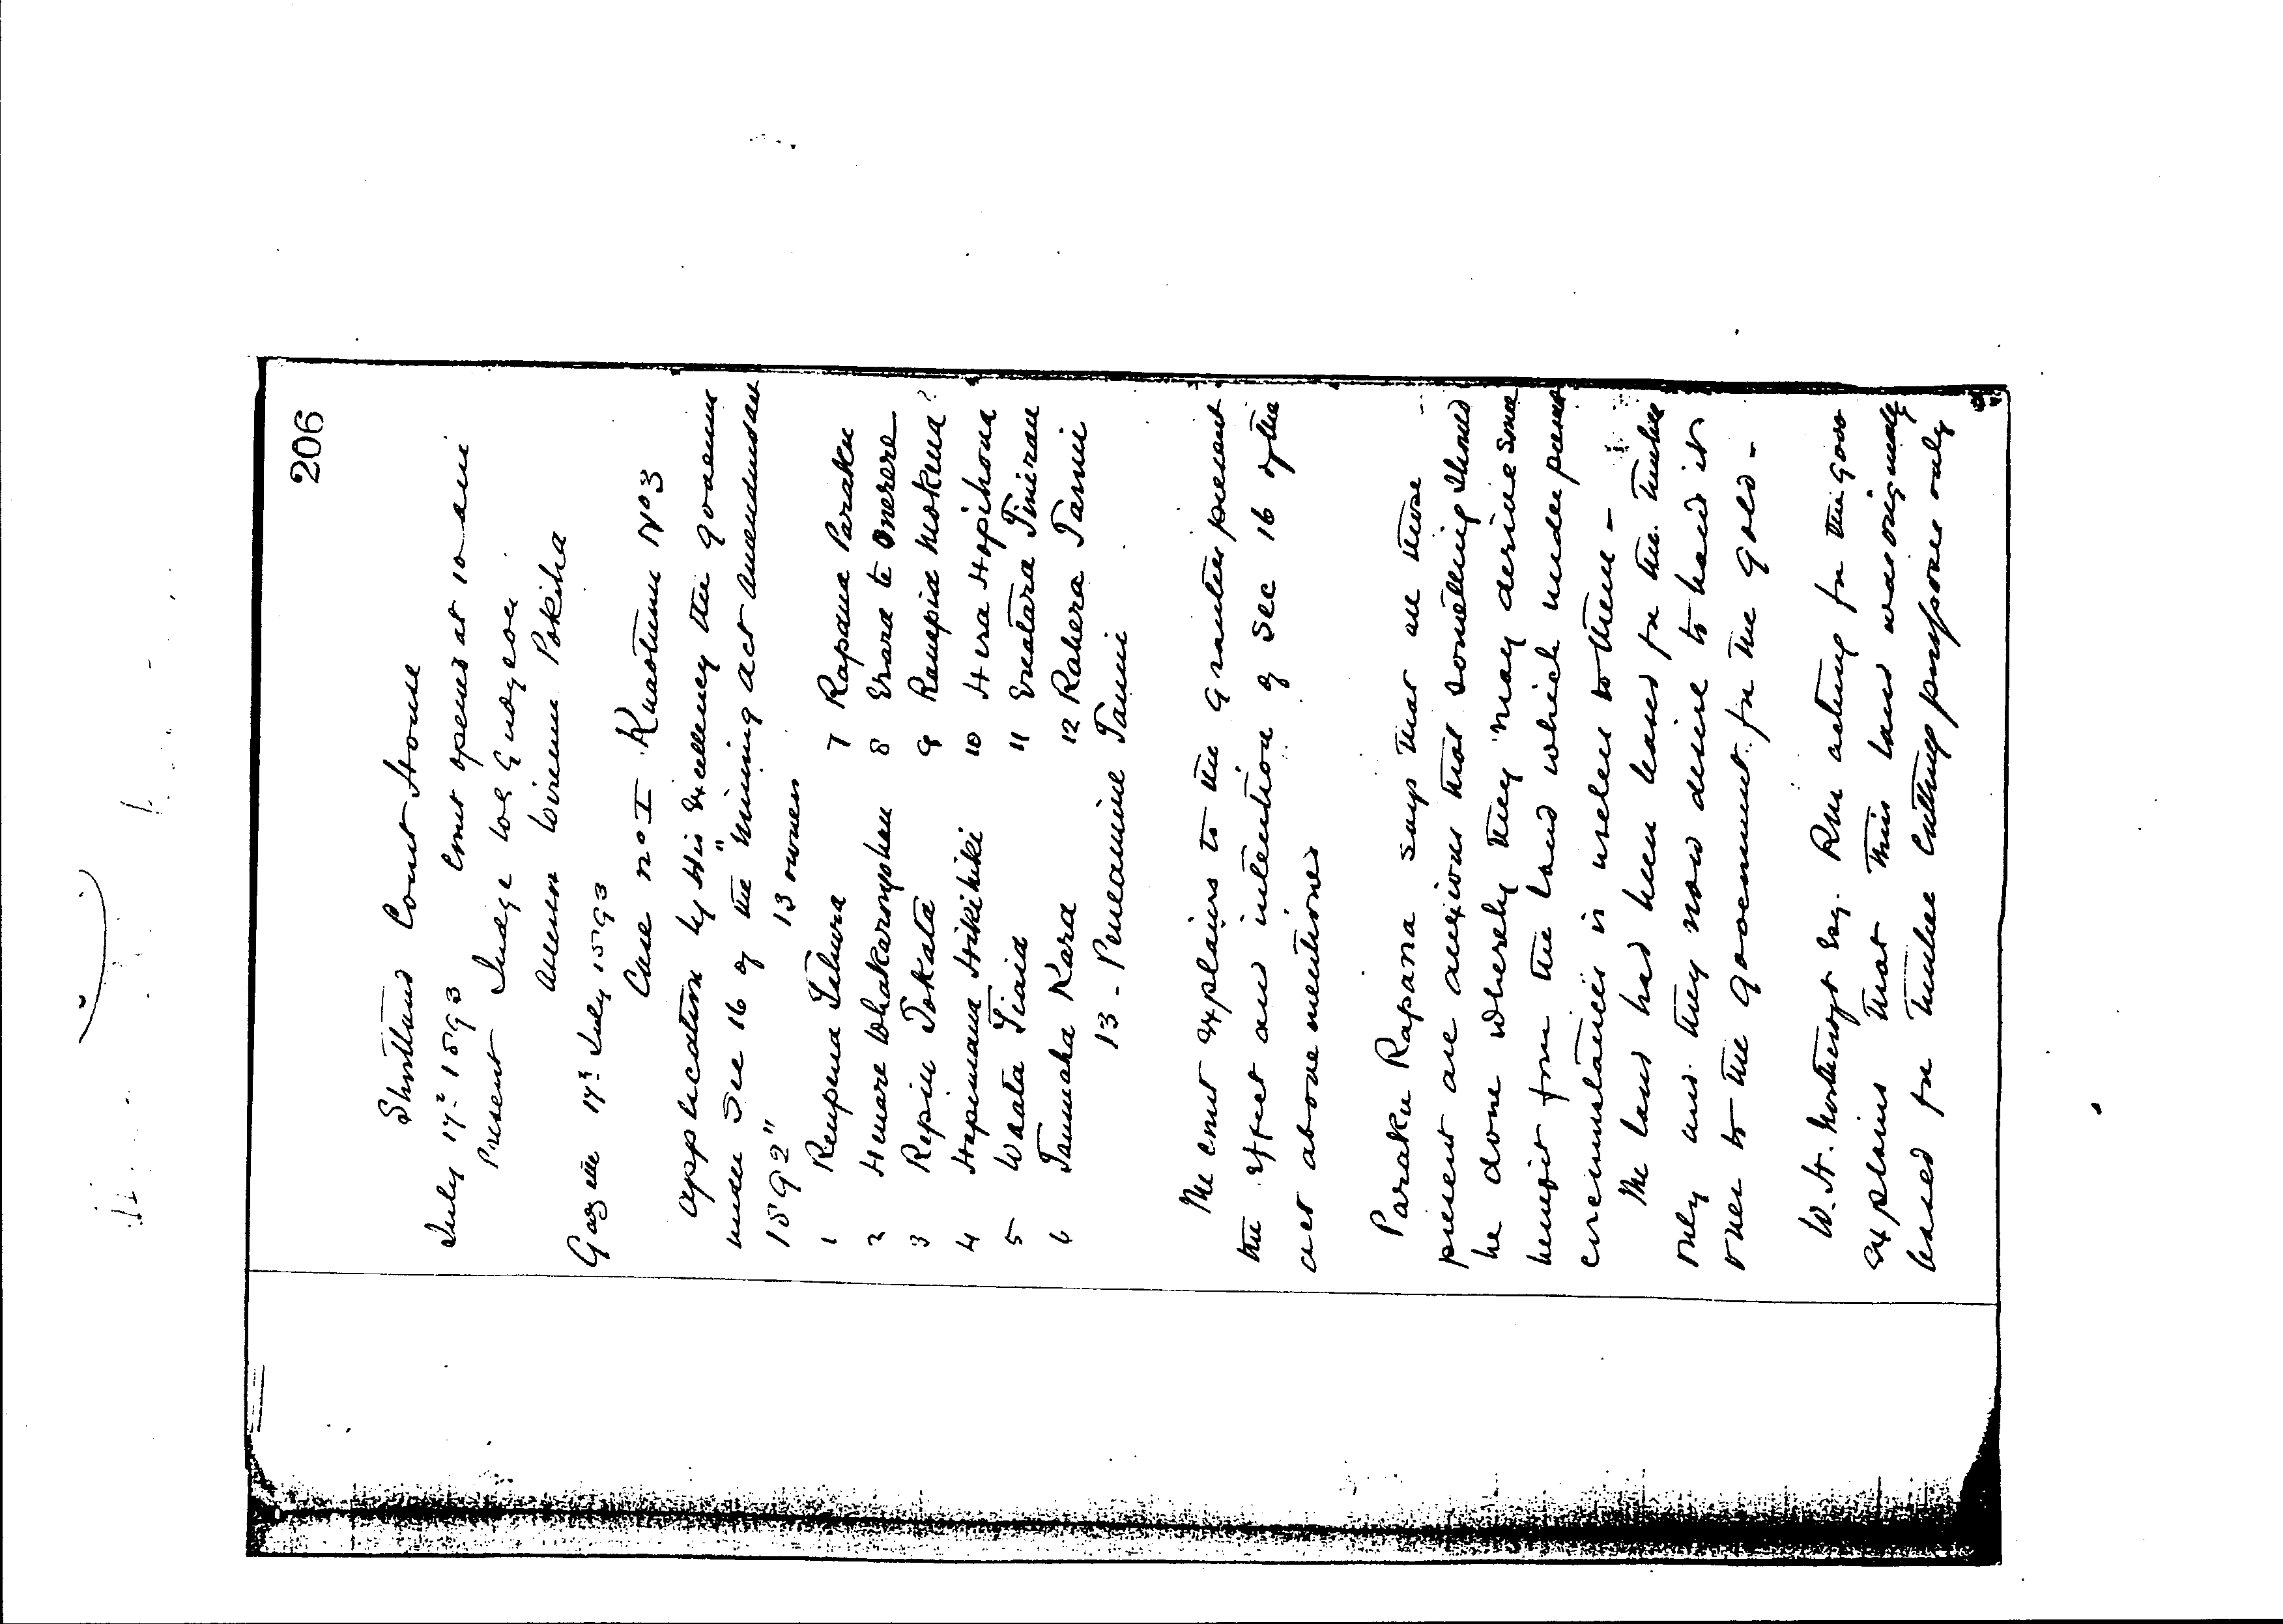 206
Shortland Court House
July 17th 1893 Court opened at 10 am
Present Judge W G Mair
Assessor Wiremu Pokiha
Gazette 17th July 1893
Case No I Kuaotunu No 3
Application by His Excellency the Governor
under Sec 16 of the "Mining Act Amendment Act
1892" 13 owners
1 Reupena Tahura 7 Rapana Paraku
2 Hmare Whakarongohau 8 Erana te Onerere
3 Repiu Tokata 9 Rampia Mokena?
4 Hapimana Hikihiki 10 Hera Hopihona
5 Waata Tiaia 11 Eraatara Tinirau
6 Tamaha Kara 12 Rahera Tanui
13 - Tanui
The Court explains to the grantees present
the effect and intention of Sec 16 of the
act above mentioned
Paraku Rapana says that all those
present are anxious that something should
be done whereby they may derive some
benefit from the land which under present
circumstances is useless to them -
The land has been leased for the timber
only and they now desire to hand it
over to the government for the gold -
W. H. Northcroft Esq. RM acting for the Govr
explains that this land was originally
leased for timber cutting purposes only